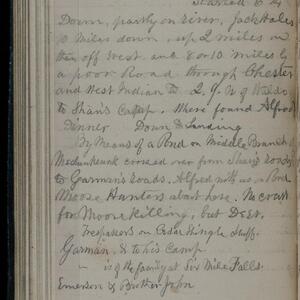 Down, partly on River, Jack Hales
miles down, up 2 miles on
then off West and 8 or 10 miles by
a poor Road through Chester
and West Indian to 2, 9, N of
to Shaw's Camp. Where found Alfred
Dinner Down to Landing
By Means of a Pond on Middle Branch of
crossed over from Shaw's roads
to Garman's roads. Alfred with us a Pond
Moose Hunters about here. No craft
for Moose killing, but Do et.
Trespassers on Cedar Shingle Stuff.
Garman, & to his Camp
is of the faculty at Six Mile Falls.
Emerson & Brother John